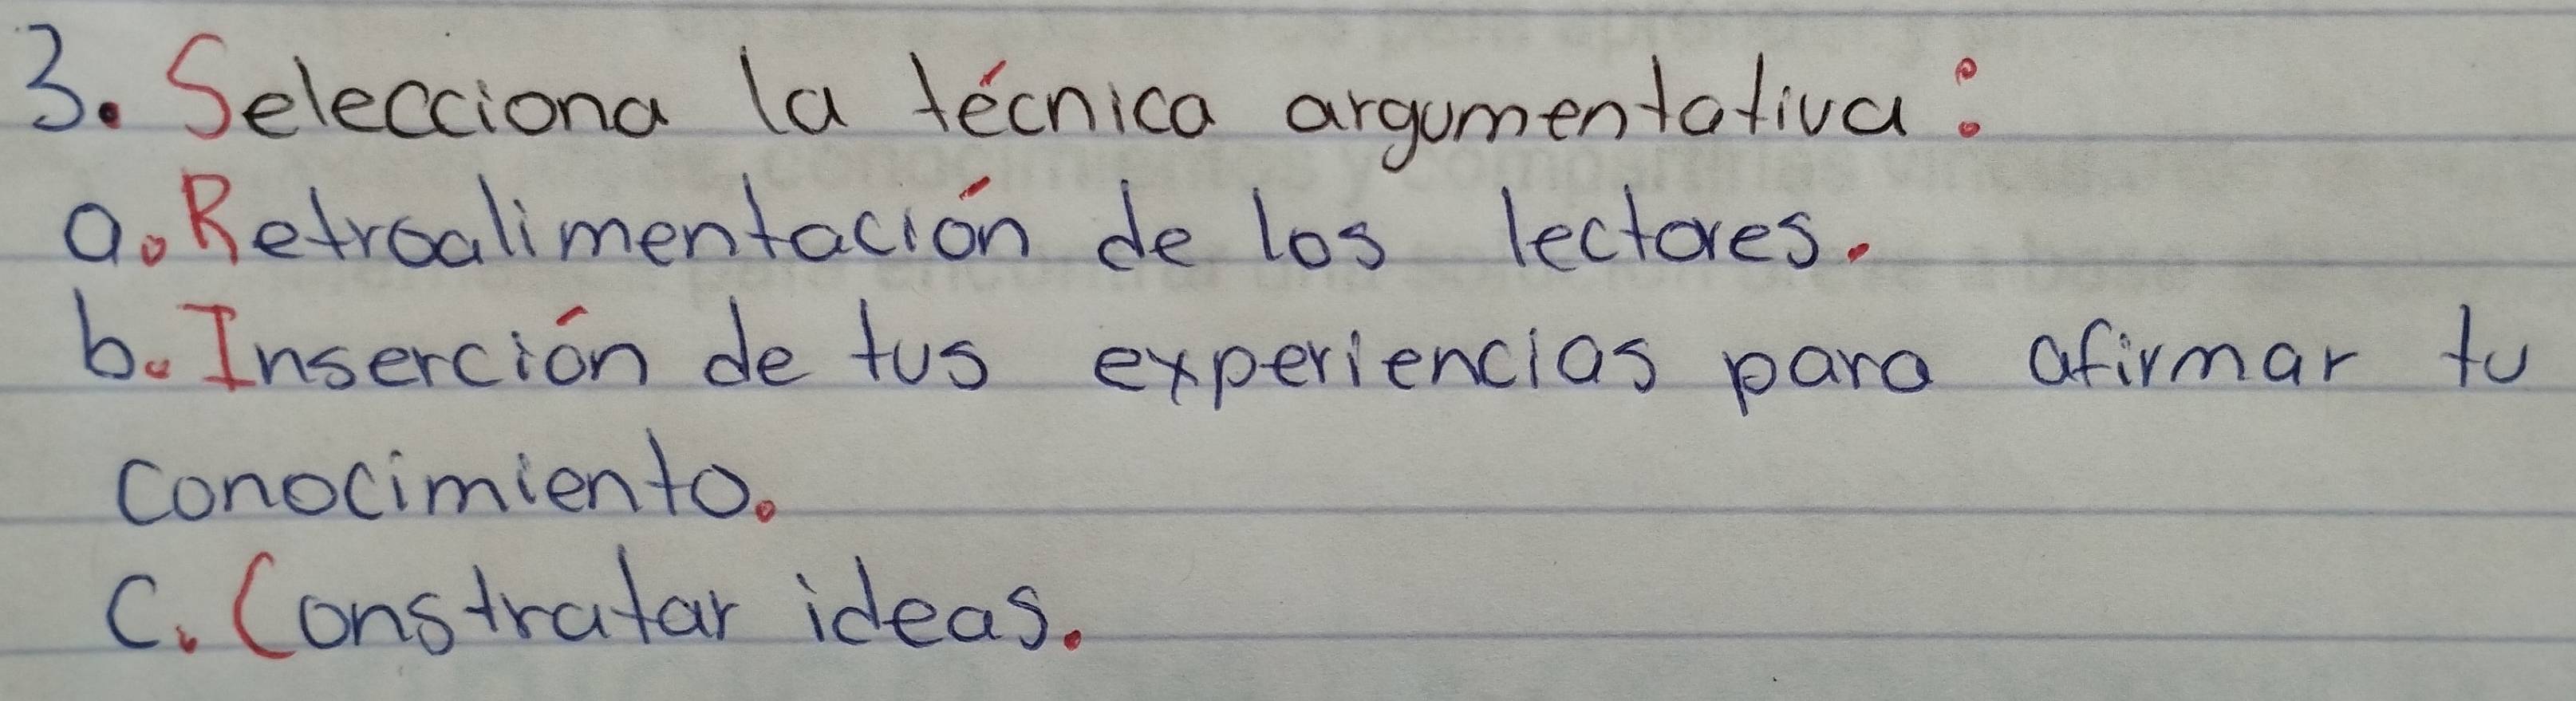 3. Selecciona la técnica argumentativa:
a. Retroalimentación de los lectores.
b. Inserción de tus experiencias para afirmar tu
conocimiento.
c. Constratar ideas.